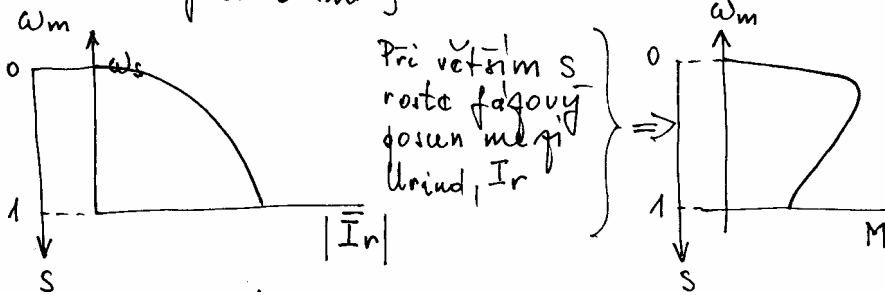 ωm
0
ωs
1
S
|Ir|
Při větším s
roste fázový
posun mezi
Urind, Ir
⇒
ωm
0
1
S
M